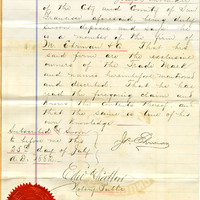 of the City and County of San
Francisco aforesaid being duly
sworn deposes and says that he
is a member of the firm of
M. Ehrman & Co. That
said firm are the exclusive
owners of the Trade Mark
and names hereinbefore mentioned
and described. That he has
read the foregoing claim and
knows the contents thereof and
that the same is true of his
own knowledge.
Subscribed & sworn
to before me this
25th day of July
A.D. 1882
Notary Public